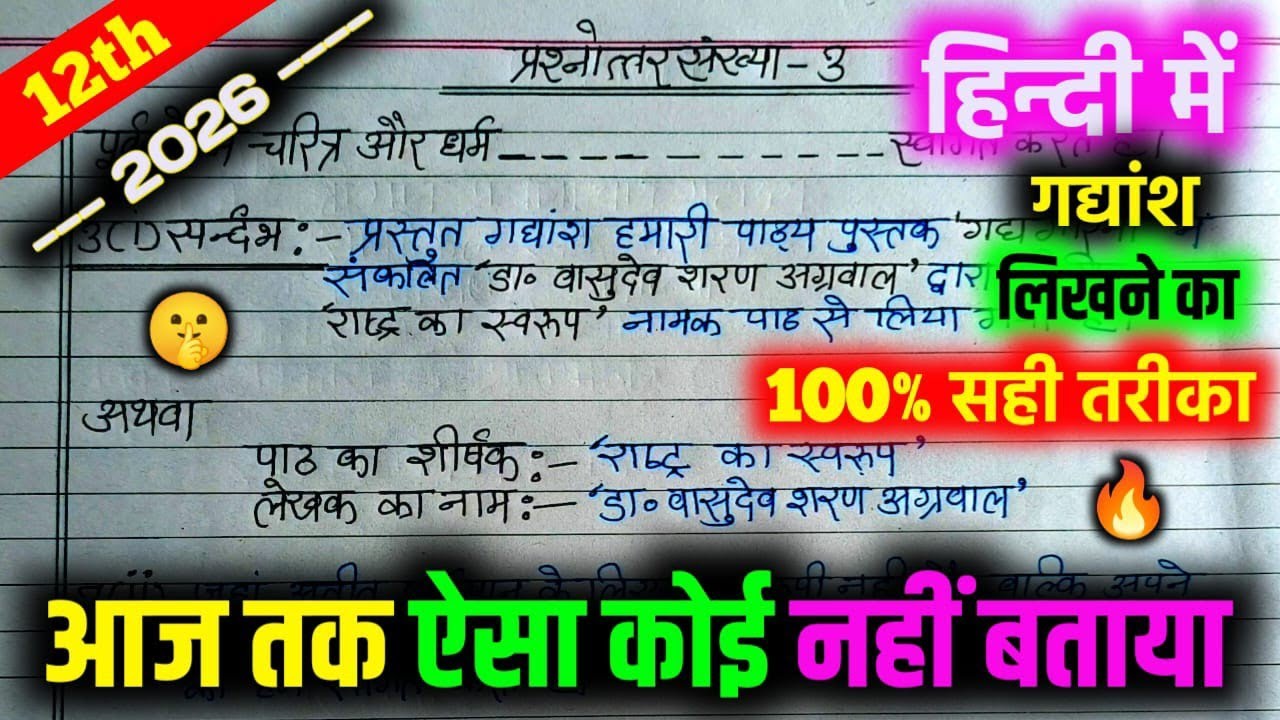 12th
--- 2026 ---
हिन्दी में
गद्यांश
लिखने का
100% सही तरीका
प्रश्नोत्तर संख्या - 3
चरित्र और धर्म ----------- स्वागत करते है।
3(i) सर्न्दभ :- प्रस्तुत गद्यांश हमारी पाठ्य पुस्तक
संकलित 'डा० वासुदेव शरण अग्रवाल' द्वारा
'राष्ट्र का स्वरूप' नामक पाठ से लिया
अथवा
पाठ का शीर्षक :- 'राष्ट्र का स्वरूप'
लेखक का नाम :- 'डा० वासुदेव शरण अग्रवाल'
अपने
आज तक ऐसा कोई नहीं बताया